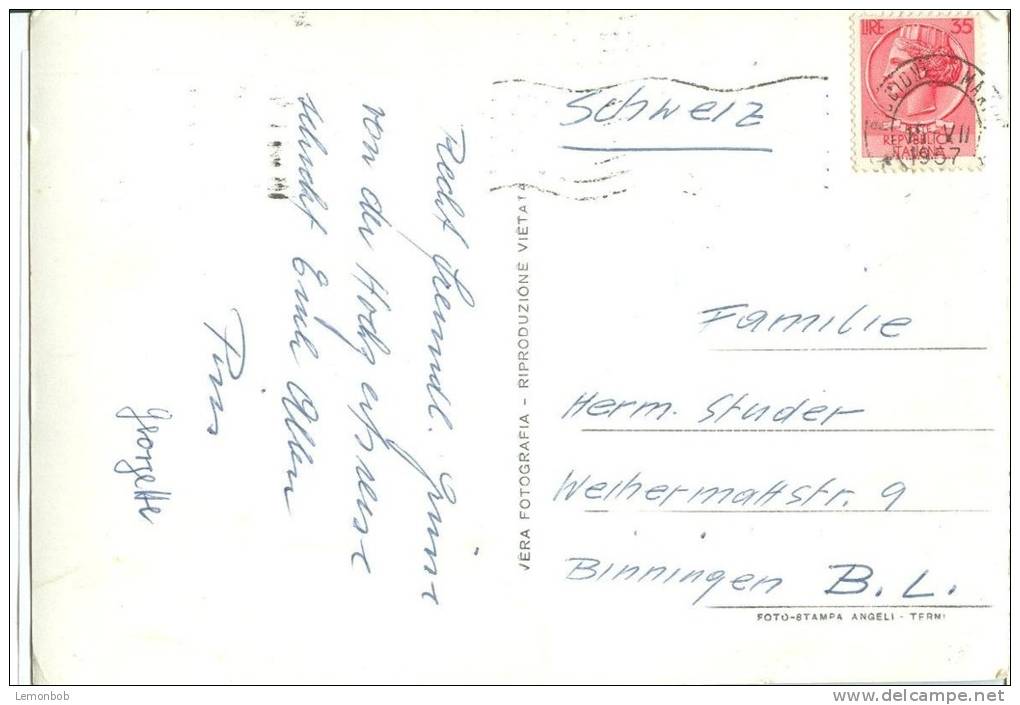 LIRE 35
15 VII
REPVBBLICA
ITALIANA
1957
Schweiz
Recht freundl. Grüsse
von der Hochzeitsreise
schickt Euch Allen
Georgette
VERA FOTOGRAFIA - RIPRODUZIONE VIETATA
Familie
Herm. Studer
Weihermattstr. 9
Binningen B.L.
FOTO-STAMPA ANGELI - TERNI
Lemonbob
http://www.delcampe.net